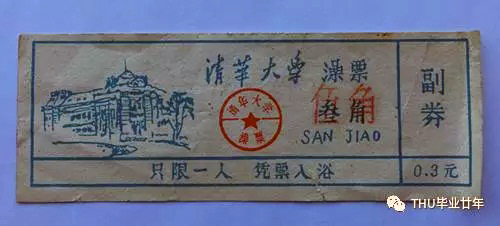 清华大学 澡票
伍角
叁角
SAN JIAO
清华大学
澡票
只限一人 凭票入浴
副券
0.3元
THU毕业廿年